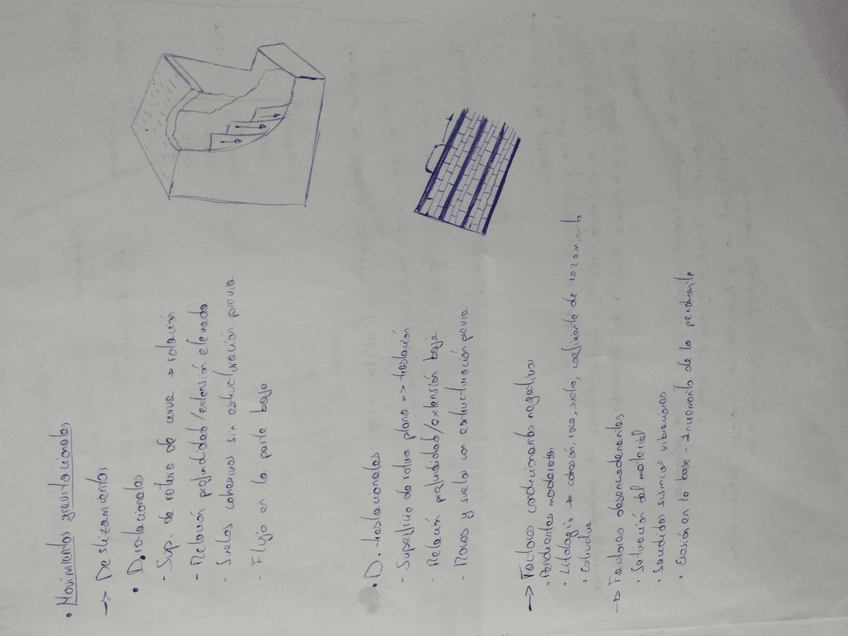 • Movimientos gravitacionales
-> Deslizamientos
• D. rotacionales
- Sup. de rotura de curva -> rotación
- Relación profundidad/extensión elevada
- Suelos cohesivos sin estructuración previa
- Flujo en la parte baja
• D. traslacionales
- Superficie de rotura plana => traslación
- Relación profundidad/extensión baja
- Rocas y suelos con estructuración previa
-> Factores condicionantes negativos
• Pendientes moderadas
• Litología -> cohesión, roca, suelo, coeficiente de rozamiento
-> Factores desencadenantes
• Saturación del material
• Sacudidas sísmicas vibraciones
• Erosión en la base - incremento de la pendiente